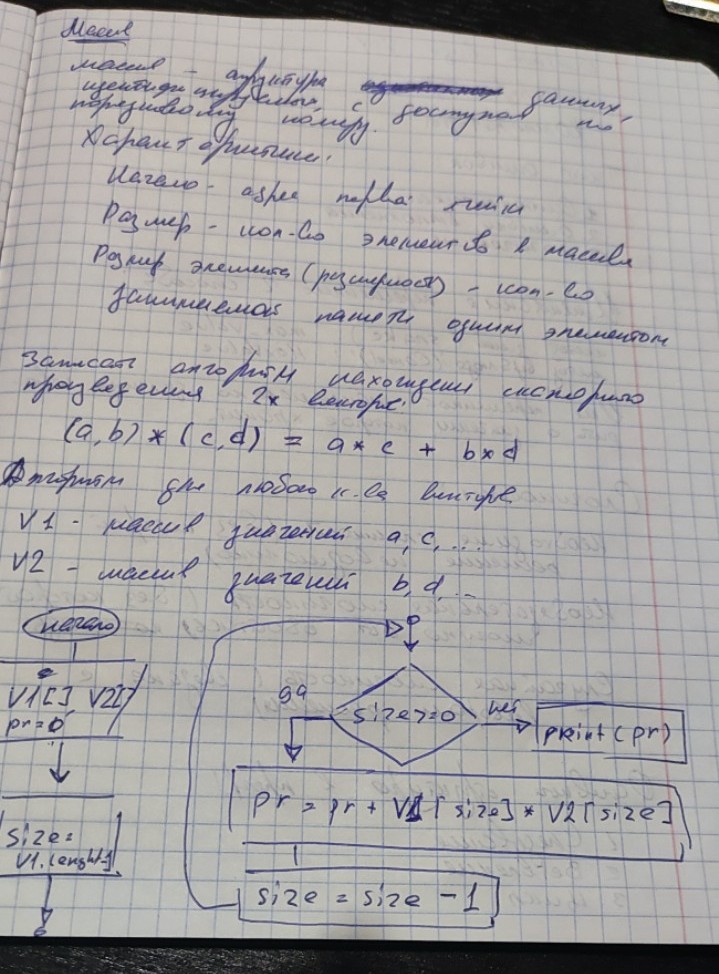 Массив
массив - структура данных,
идентифицируемых с доступом по
порядковому номеру.
Характеристики:
Начало - адрес первой ячейки
Размер - кол-во элементов в массиве
Размер элемента (размерность) - кол-во
занимаемой памяти одним элементом
Записать алгоритм нахождения скалярного
произведения 2х векторов:
(a,b) * (c,d) = a * c + b * d
Алгоритм для любого к-ва векторов
V1 - массив значений a, c, ...
V2 - массив значений b, d, ...
начало
V1[] V2[]
pr = 0
size =
V1.lenght-1
size >= 0
да
нет
print (pr)
pr = pr + V1[size] * V2[size]
size = size - 1